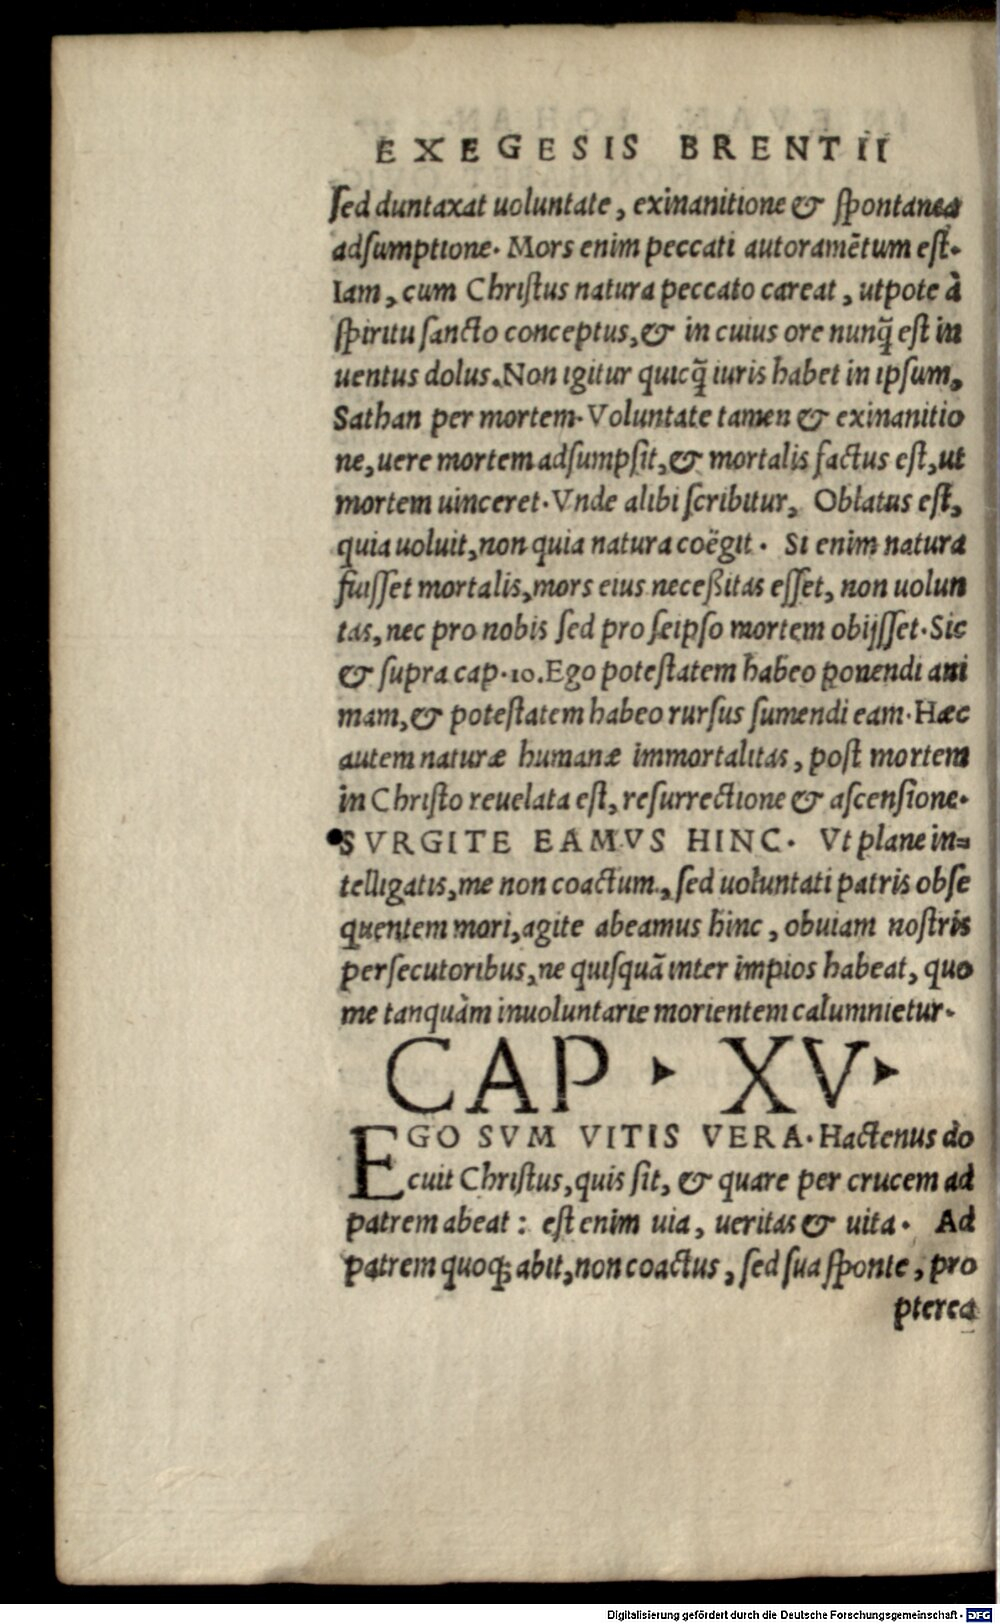 EXEGESIS BRENTII
sed duntaxat uoluntate, exinanitione & spontanea
adsumptione. Mors enim peccati autoramētum est.
Iam, cum Christus natura peccato careat, utpote à
spiritu sancto conceptus, & in cuius ore nunq̃ est in
uentus dolus. Non igitur quicq̃ iuris habet in ipsum,
Sathan per mortem. Voluntate tamen & exinanitio
ne, uere mortem adsumpsit, & mortalis factus est, ut
mortem uinceret. Vnde alibi scribitur, Oblatus est,
quia uoluit, non quia natura coëgit. Si enim natura
fuisset mortalis, mors eius neceßitas esset, non uolun
tas, nec pro nobis sed pro seipso mortem obijsset. Sic
& supra cap. 10. Ego potestatem habeo ponendi ani
mam, & potestatem habeo rursus sumendi eam. Hæc
autem naturæ humanæ immortalitas, post mortem
in Christo reuelata est, resurrectione & ascensione.
SVRGITE EAMVS HINC. Vt plane in=
telligatis, me non coactum, sed uoluntati patris obse
quentem mori, agite abeamus hinc, obuiam nostris
persecutoribus, ne quisquã inter impios habeat, quo
me tanquàm inuoluntarie morientem calumnietur.
CAP. XV.
EGO SVM VITIS VERA. Hactenus do
cuit Christus, quis sit, & quare per crucem ad
patrem abeat: est enim uia, ueritas & uita. Ad
patrem quoq; abit, non coactus, sed sua sponte, pro
pterea
Digitalisierung gefördert durch die Deutsche Forschungsgemeinschaft - DFG